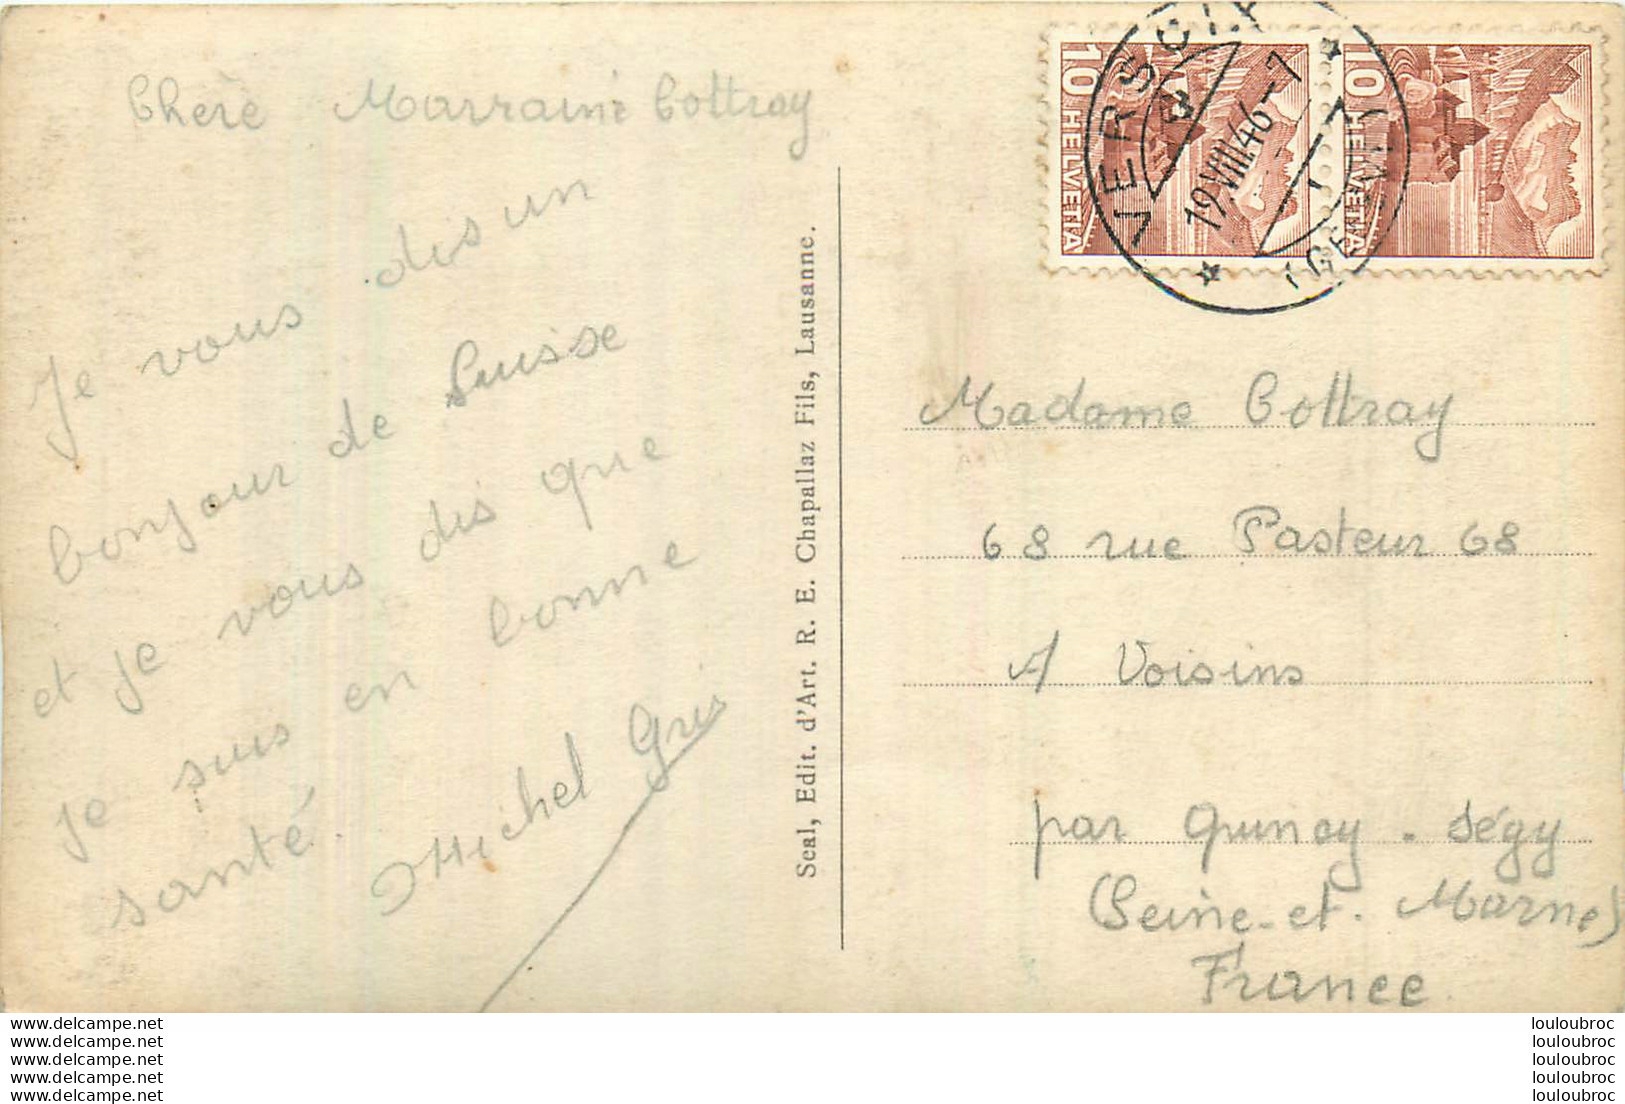 Chère Marraine Cottray
Je vous dis un
bonjour de Suisse
et je vous dis que
je suis en bonne
santé.
Michel Gris
Seal, Edit. d'Art. R. E. Chapallaz Fils, Lausanne.
10 HELVETIA
10 HELVETIA
VERSOIX
19.VIII.46-7
(GENÈVE)
Madame Cottray
68 rue Pasteur 68
A Voisins
par Quincy-Ségy
(Seine-et-Marne)
France
www.delcampe.net
www.delcampe.net
www.delcampe.net
www.delcampe.net
www.delcampe.net
louloubroc
louloubroc
louloubroc
louloubroc
louloubroc